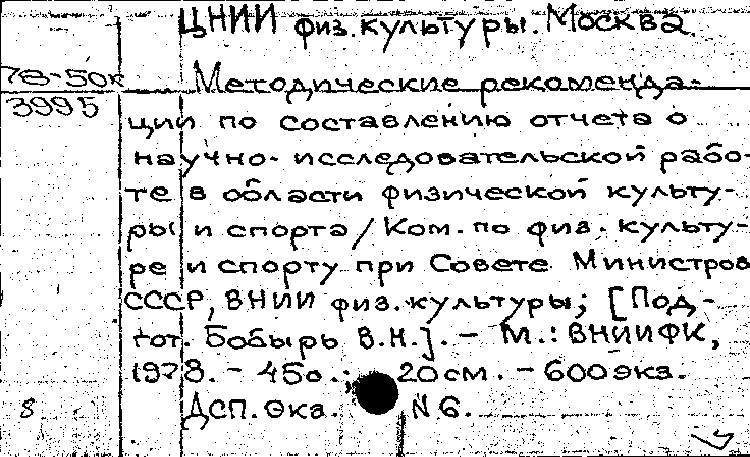 ЦНИИ физ.культуры. Москва
78-50к Методические рекоменда-
3995
ции по составлению отчета о
научно-исследовательской рабо-
те в области физической культу-
ры и спорта / Ком. по физ. культу-
ре и спорту при Совете Министров
СССР, ВНИИ физ.культуры; [Под-
гот. Бобырь В.Н.]. - М.: ВНИИФК,
1978. - 45с.; 20см. - 600экз.
8 ДСП. Экз. N 6.